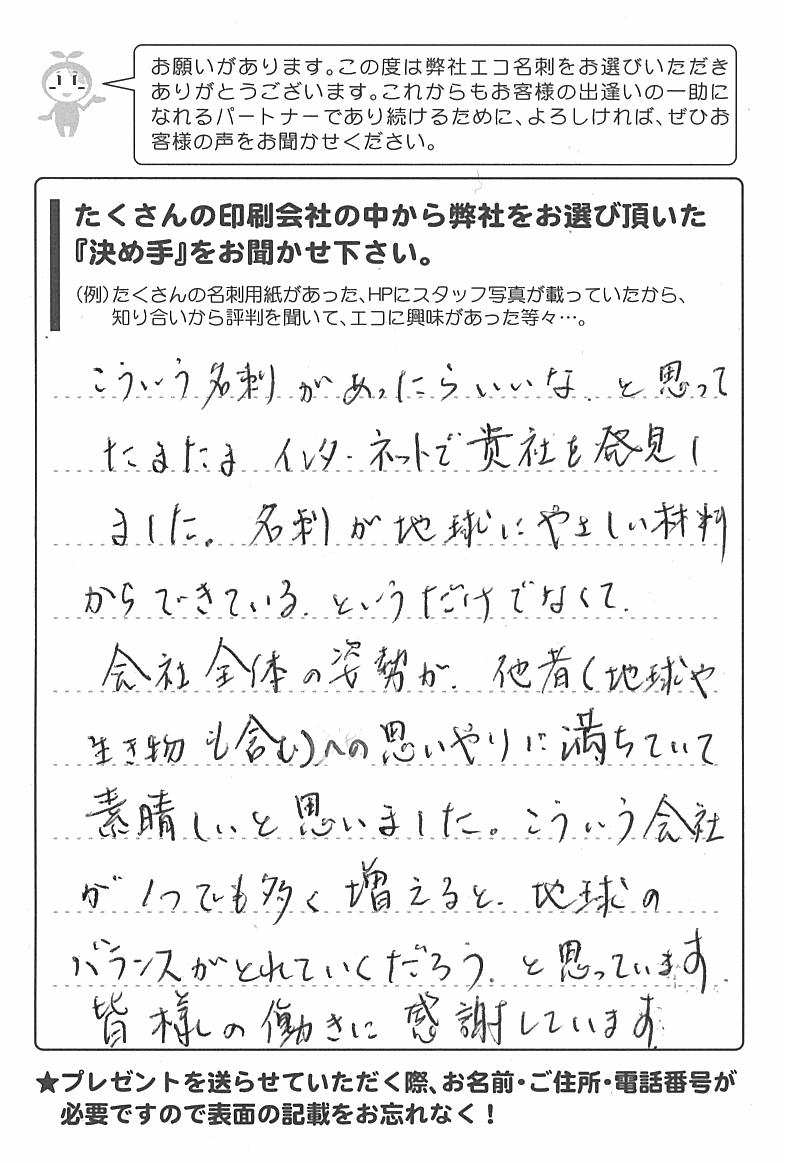 お願いがあります。この度は弊社エコ名刺をお選びいただき
ありがとうございます。これからもお客様の出逢いの一助に
なれるパートナーであり続けるために、よろしければ、ぜひお
客様の声をお聞かせください。
たくさんの印刷会社の中から弊社をお選び頂いた
『決め手』をお聞かせ下さい。
(例)たくさんの名刺用紙があった、HPにスタッフ写真が載っていたから、
知り合いから評判を聞いて、エコに興味があった等々…。
こういう名刺があったらいいな、と思って
たまたまインターネットで貴社を発見し
ました。名刺が地球にやさしい材料
からできている、というだけでなくて、
会社全体の姿勢が、他者(地球や
生き物も含む)への思いやりに満ちていて
素晴しいと思いました。こういう会社
が1つでも多く増えると、地球の
バランスがとれていくだろう、と思っています。
皆様の働きに感謝しています。
★プレゼントを送らせていただく際、お名前・ご住所・電話番号が
必要ですので表面の記載をお忘れなく!